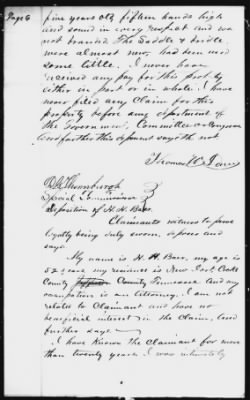 Page 6
five years old fifteen hands high
and sound in every respect and was
not branded The Saddle & bridle
were almost new, had been used
some little. I never have
received any pay for this property
either in part or in whole. I have
never filed any Claim for this
property before any department of
the Government, Committee or Congress
And further this deponent sayeth not
Thomas C
D. A. Thornburgh
Special Commissioner
Deposition of H. H. Baer.
Claimants witness to prove
loyalty being duly sworn, deposes and
says.
My name is H. H. Baer, my age is
52 years my residence is New Port, Cocke
County County Tennessee And my
occupation is an Attorney. I am not
related to Claimant and have no
beneficial interest in the Claim, and
further says
I have Known the Claimant for more
than twenty years I was intimately